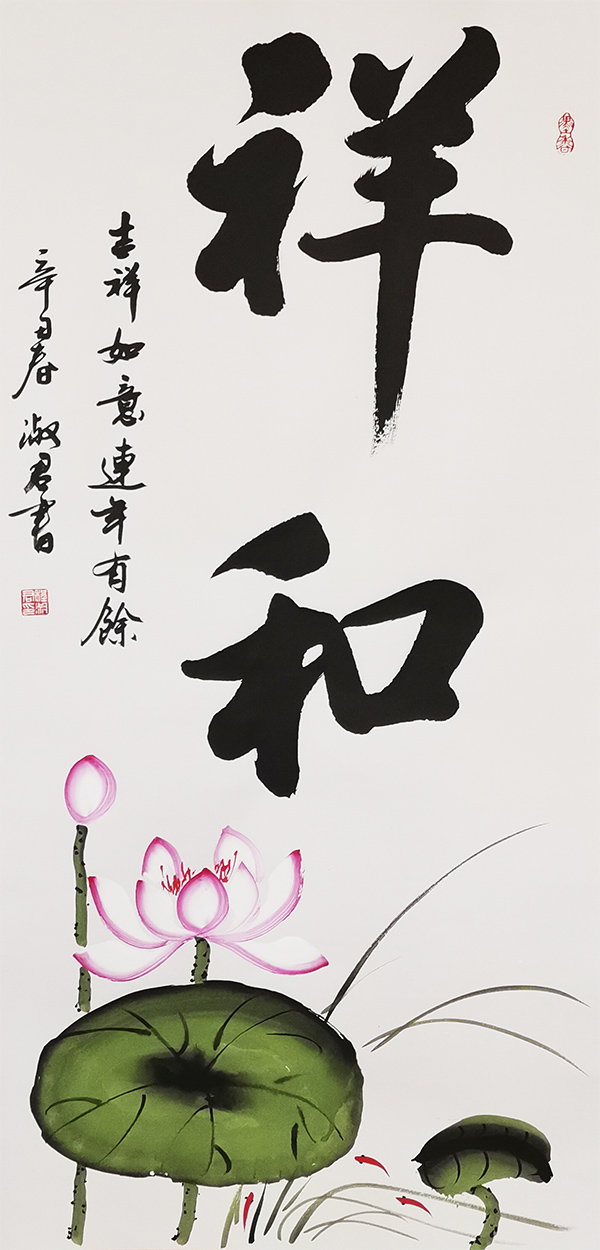 祥和
吉祥如意連年有餘
辛丑春 淑君書